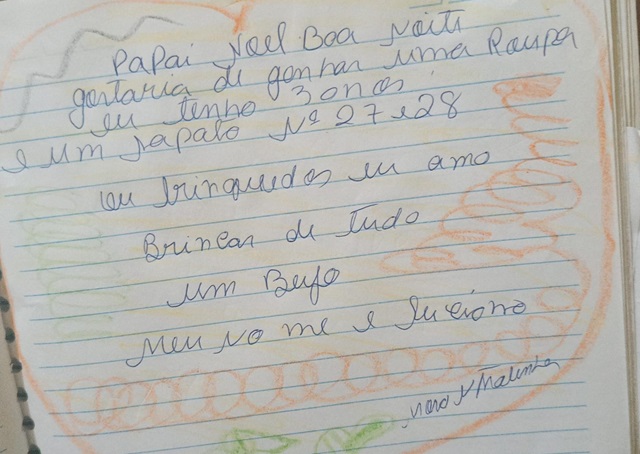 PaPai Noel Boa Noiti
gostaria de ganhar uma Roupa
eu tenho 3 anos
e um sapato Nº 27 e 28
ou brinquedos eu amo
Brincar de Tudo
um Beijo
Meu No me e Luciano